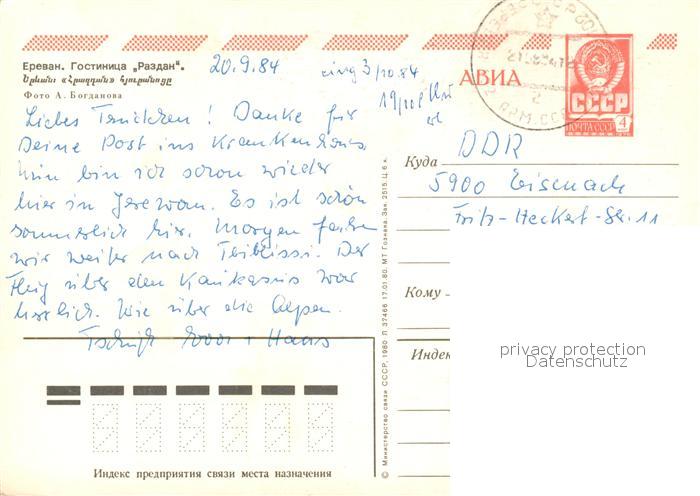 Ереван. Гостиница „Раздан“.
Երևան: «Հրազդան» հյուրանոցը
Фото А. Богданова
20.9.84
eing 3/10.84
19/10.
АВИА
СССР
ПОЧТА СССР 4
АРМ. ССР
Liebes Trudchen! Danke für
Deine Post ins Krankenhaus
nun bin ich schon wieder
hier in Jerewan. Es ist schön
sommerlich hier. Morgen fahren
wir weiter nach Tbilissi. Der
Flug über den Kaukasus war
herrlich. Wie über die Alpen.
Tschüß + Hans
Куда
DDR
5900 Eisenach
Fritz-Heckert-Str. 11
Кому
Индекс
privacy protection
Datenschutz
Индекс предприятия связи места назначения
© Министерство связи СССР, 1980 Л 37466 17.01.80. МТ Гознака. Зак. 2515. Ц. 6 к.